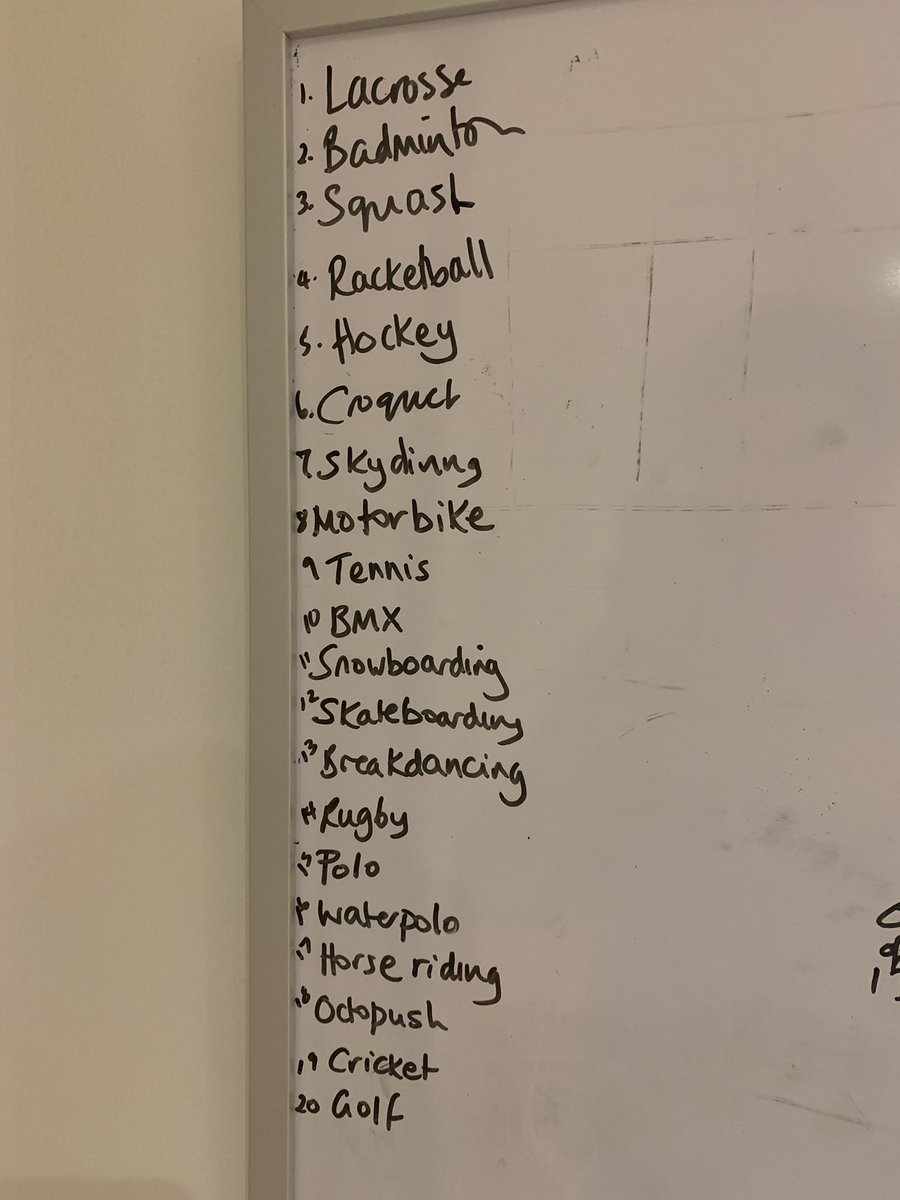 1. Lacrosse
2. Badminton
3. Squash
4. Racketball
5. Hockey
6. Croquet
7. Skydiving
8 Motorbike
9 Tennis
10 BMX
11 Snowboarding
12 Skateboarding
13 Breakdancing
14 Rugby
15 Polo
16 Waterpolo
17 Horse riding
18 Octopush
19 Cricket
20 Golf